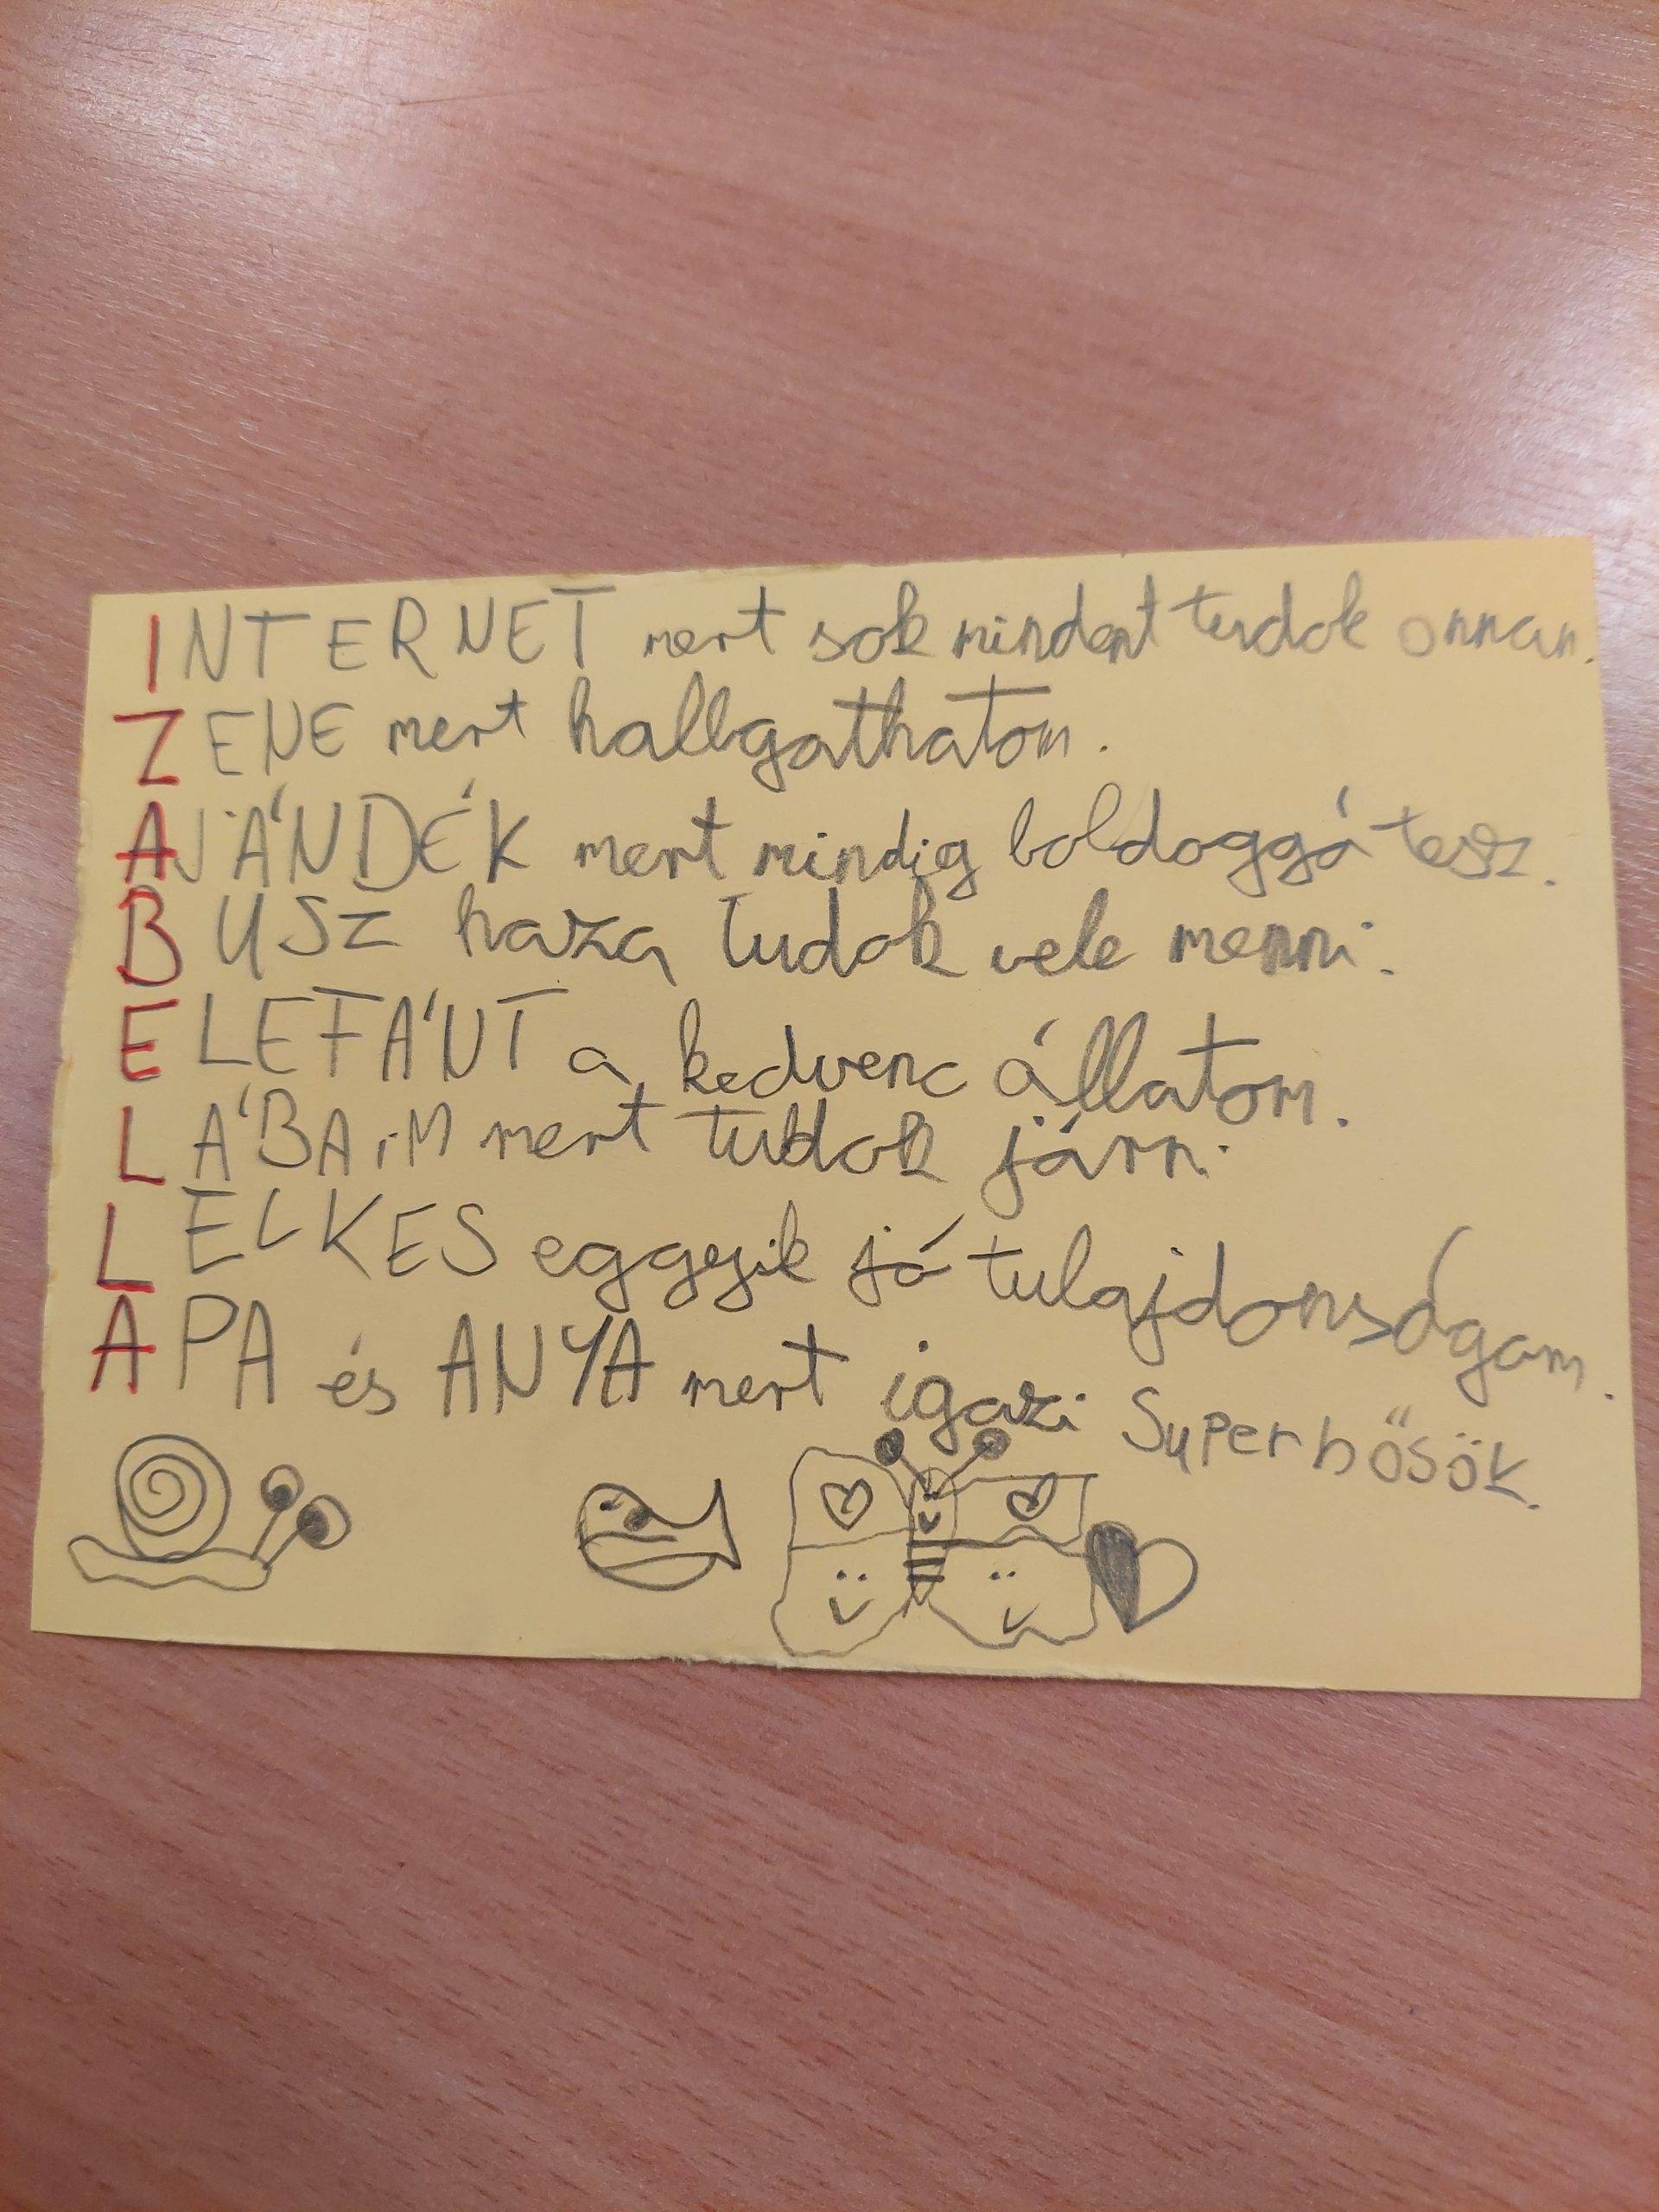 INTERNET mert sok mindent tudok onnan.
ZENE mert hallgathatom.
AJÁNDÉK mert mindig boldoggá tesz.
BUSZ haza tudok vele menni.
ELEFÁNT a kedvenc állatom.
LÁBAiM mert tudok járni.
LELKES eggyik jó tulajdonságam.
APA és ANYA mert igazi Superhősök.